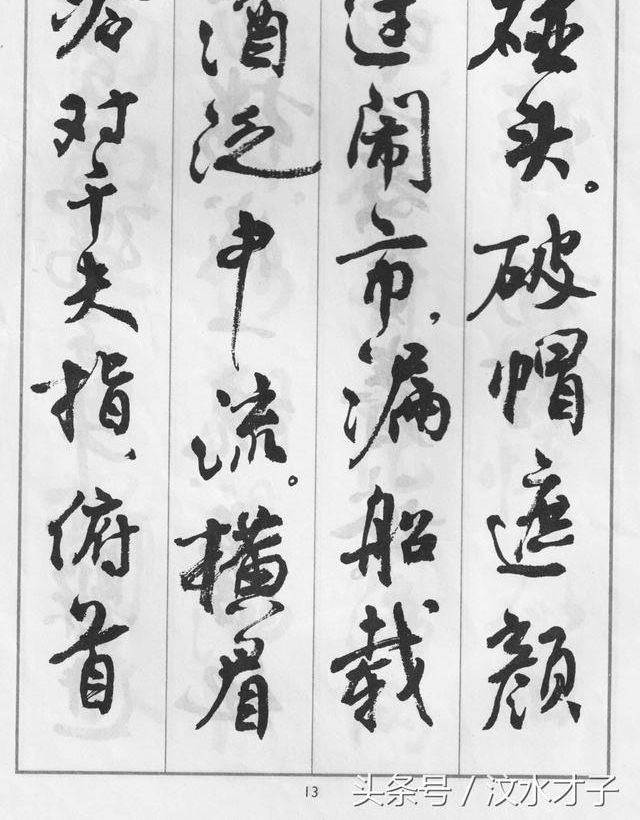 碰头。破帽遮颜
过闹市,漏船载
酒泛中流。横眉
冷对千夫指,俯首
13
头条号 / 汶水才子